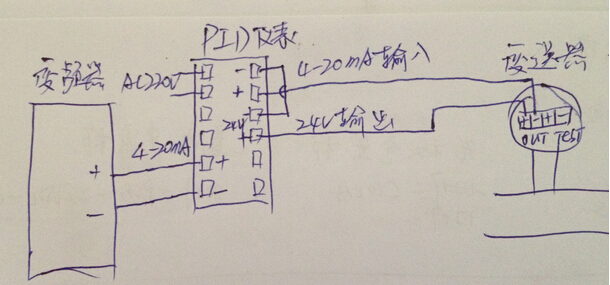 PID仪表
变频器
AC220V
- 4-20mA输入
+
变送器
24V -
+ 24V输出
+ - + -
OUT TEST
4-20mA +
+
-
-